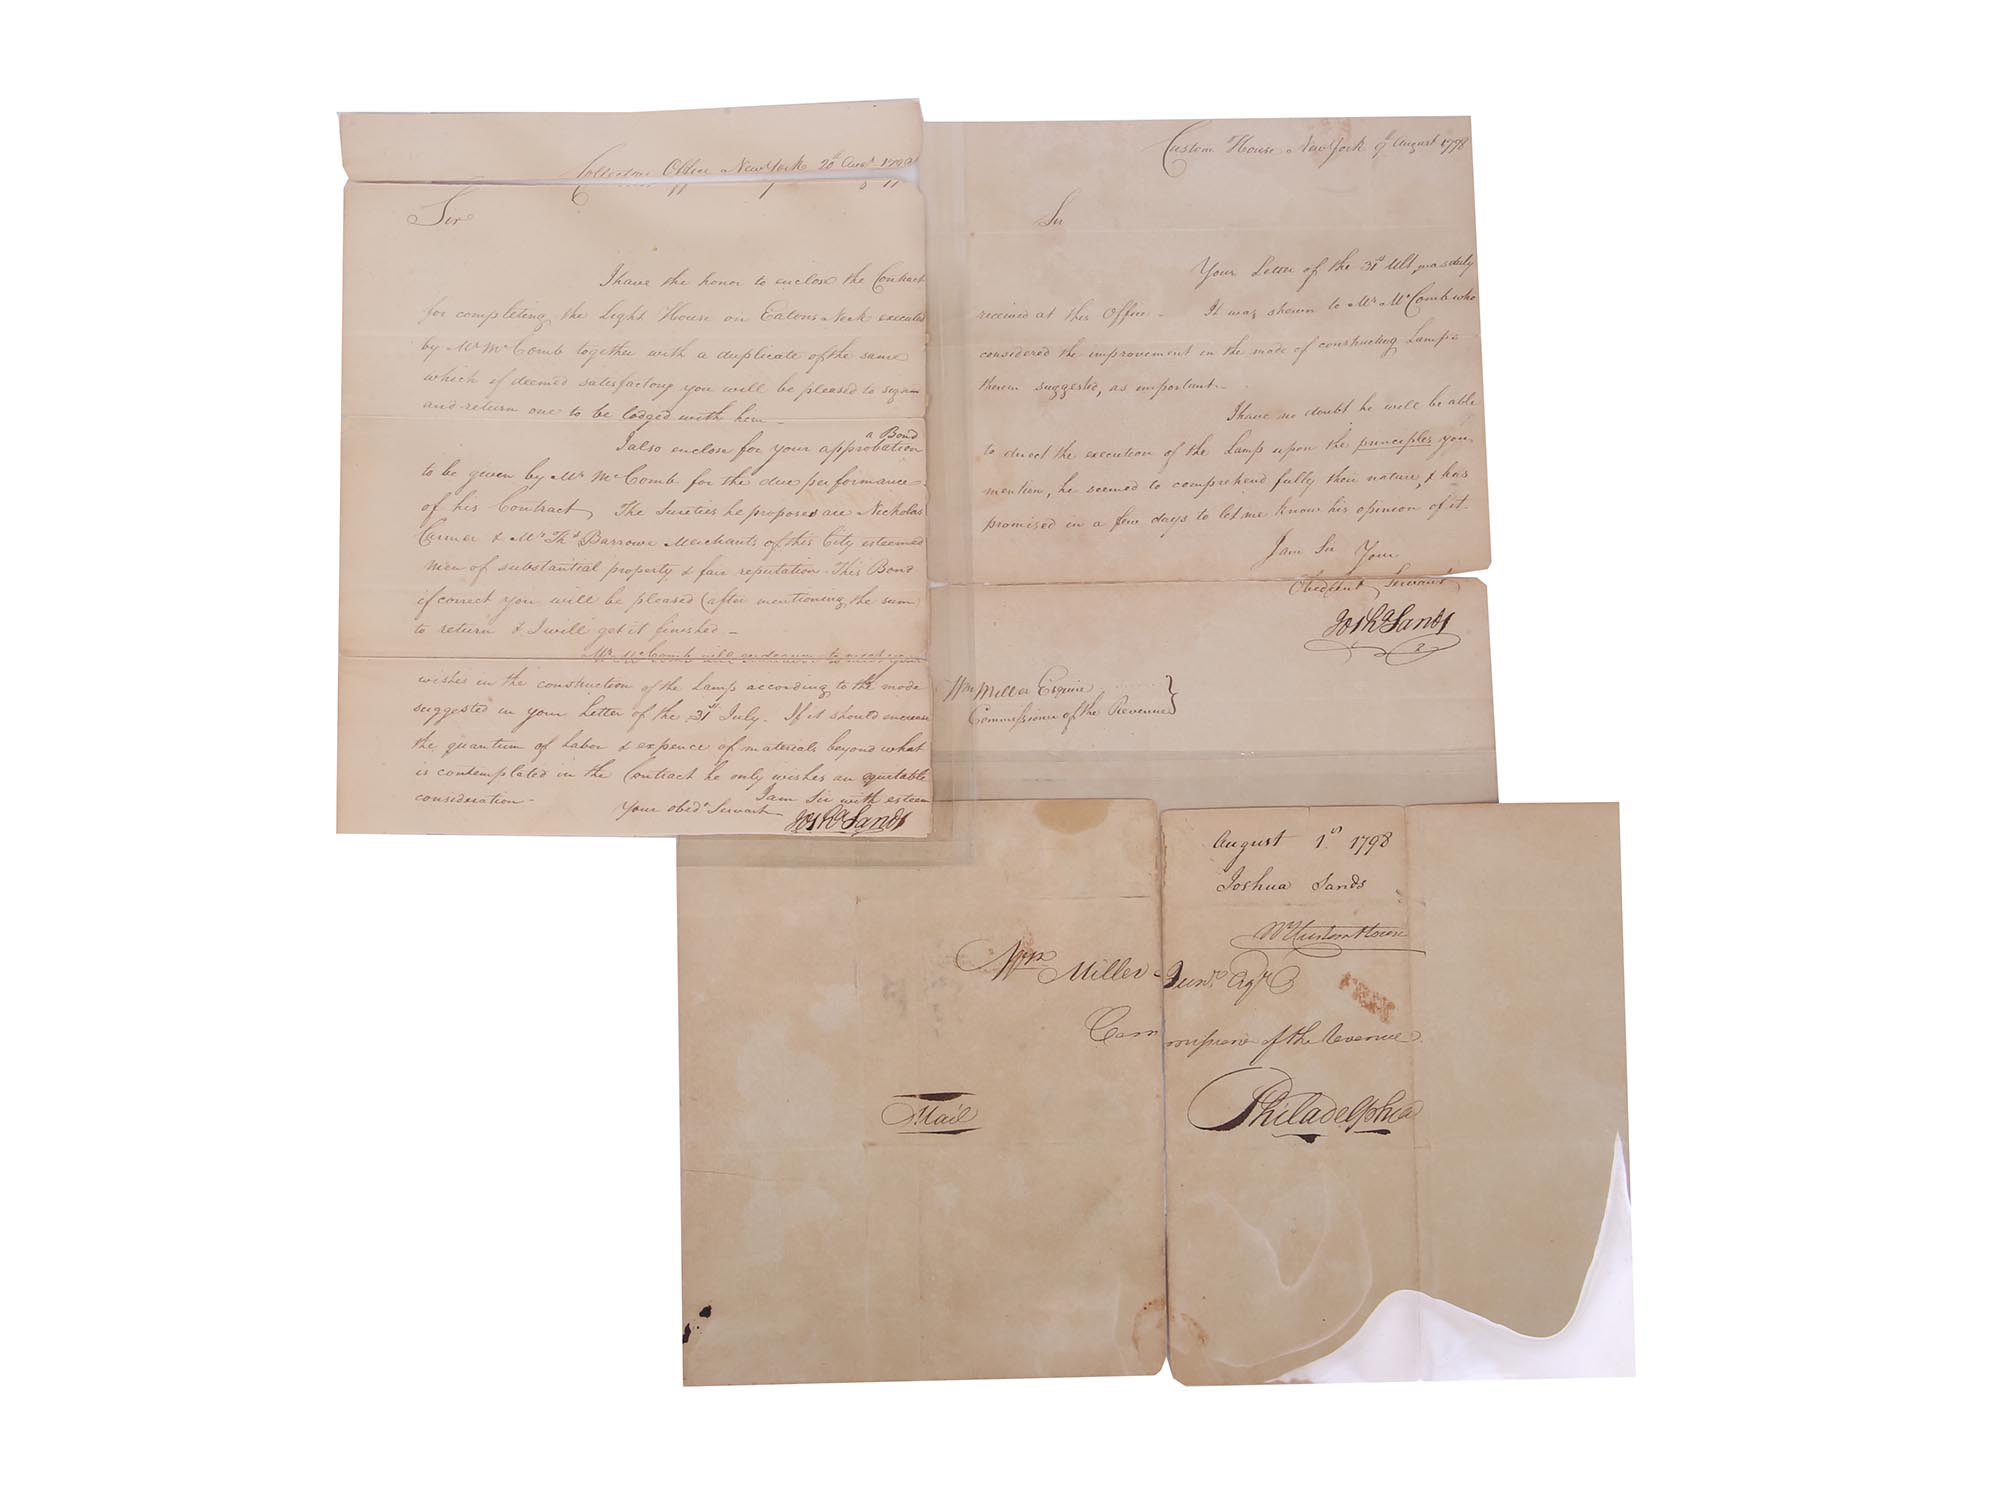 Collectors Office New York 20th Augt 1798
Sir
I have the honor to enclose the Contract
for completing the Light House on Eatons Neck executed
by Mr McComb together with a duplicate of the same
which if deemed satisfactory you will be pleased to sign
and return one to be lodged with him –
a Bond
I also enclose for your approbation
to be given by Mr McComb for the due performance
of his Contract, The Sureties he proposes are Nicholas
Carmer & Mr Thos Barrowe Merchants of this City esteemed
men of substantial property & fair reputation – This Bond
if correct you will be pleased (after mentioning the sum
to return & I will get it finished –
Mr McComb will endeavor to meet your
wishes in the construction of the Lamp according to the mode
suggested in your Letter of the 31st July. If it should encrease
the quantum of labor & expence of materials beyond what
is contemplated in the Contract he only wishes an equitable
consideration –
I am Sir with esteem
Your Obedt Servant
Josha Sands
Custom House New York 9th August 1798
Sir
Your Letter of the 31st Ult. was duly
received at this Office – It was shewn to Mr McComb who
considered the improvement in the mode of constructing Lamps
therein suggested, as important –
I have no doubt he will be able
to direct the execution of the Lamp upon the principles you
mention, he seemed to comprehend fully their nature, & has
promised in a few days to let me know his opinion of it –
I am Sir Your
Obedient Servant
Josha Sands
Wm Miller Esquire
Commissioner of the Revenue }
August 1st 1798
Joshua Sands
Custom House
Wm Miller Junr Esqr
Commissioner of the Revenue
Mail
Philadelphia